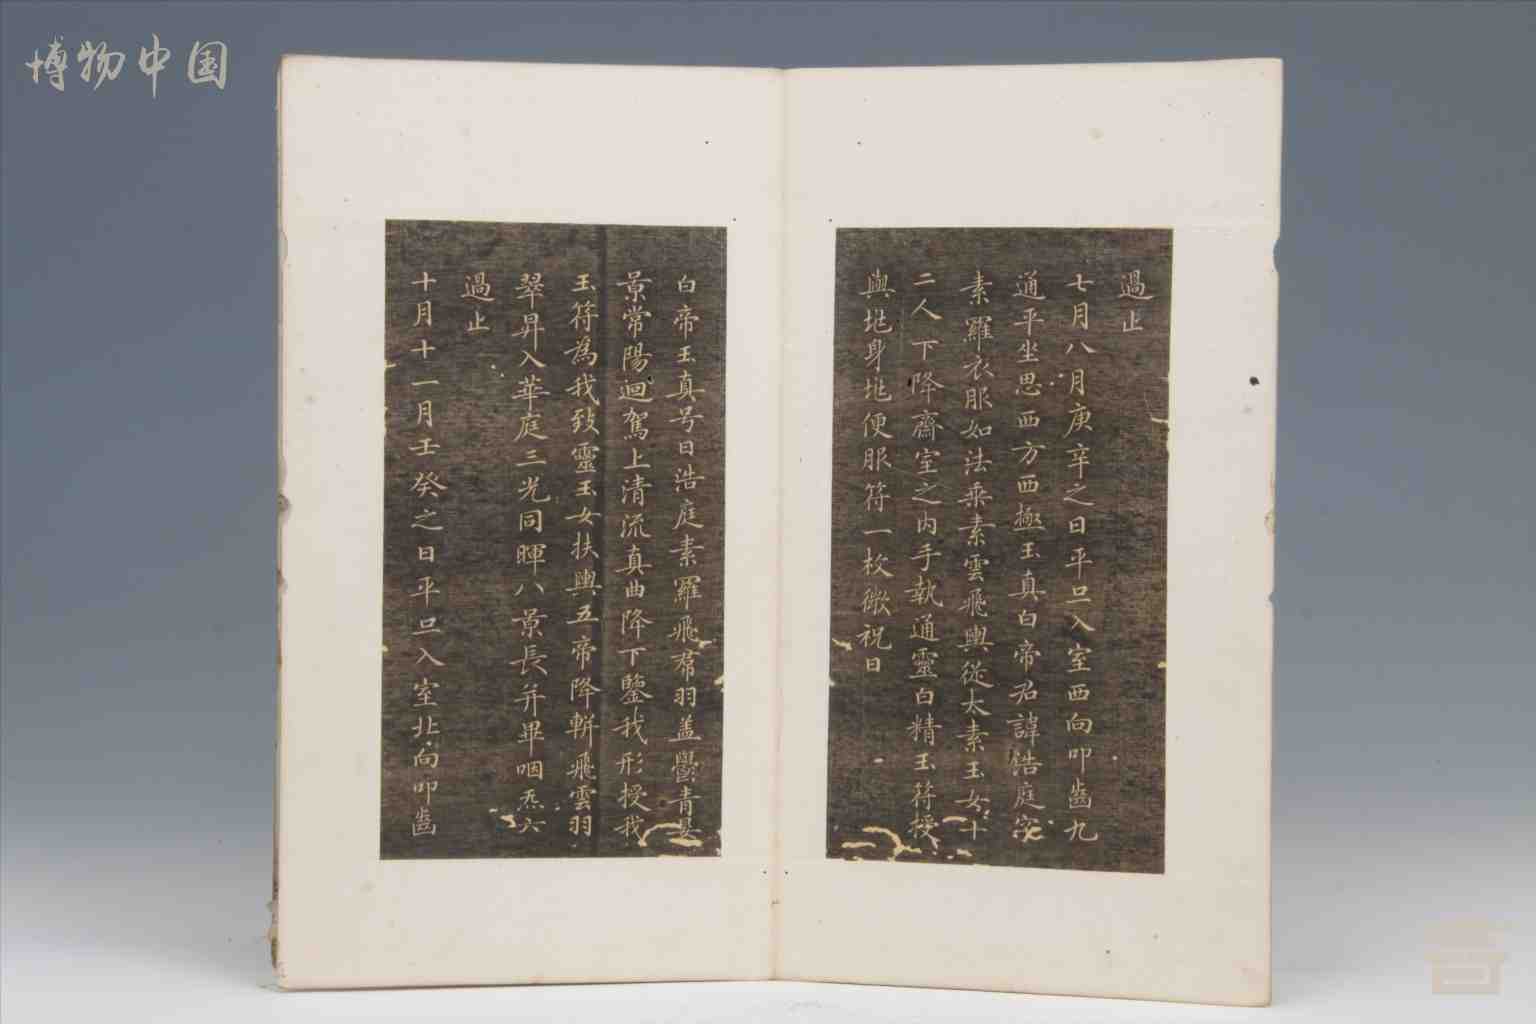 博物中国
過止
七月八月庚辛之日平旦入室西向叩齒九
通平坐思西方西極玉真白帝君諱浩庭字
素羅衣服如法乗素雲飛輿從太素玉女十
二人下降齋室之内手執通靈白精玉符授
與地身地便服符一枚微祝曰
白帝玉真号曰浩庭素羅飛帬羽盖鬱青晏
景常陽迴駕上清流真曲降下鑒我形授我
玉符為我致靈玉女扶輿五帝降軿飛雲羽
翠昇入華庭三光同暉八景長并畢咽炁六
過止
十月十一月壬癸之日平旦入室北向叩齒